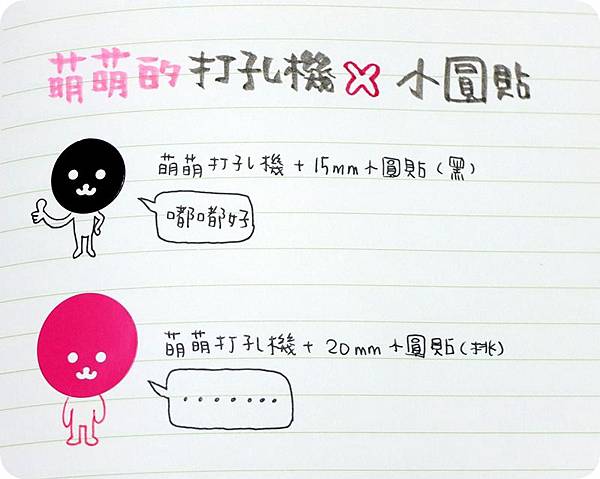 萌萌的打孔機×小圓貼
萌萌打孔機+15mm小圓貼(黑)
嘟嘟好
萌萌打孔機+20mm小圓貼(桃)
.......